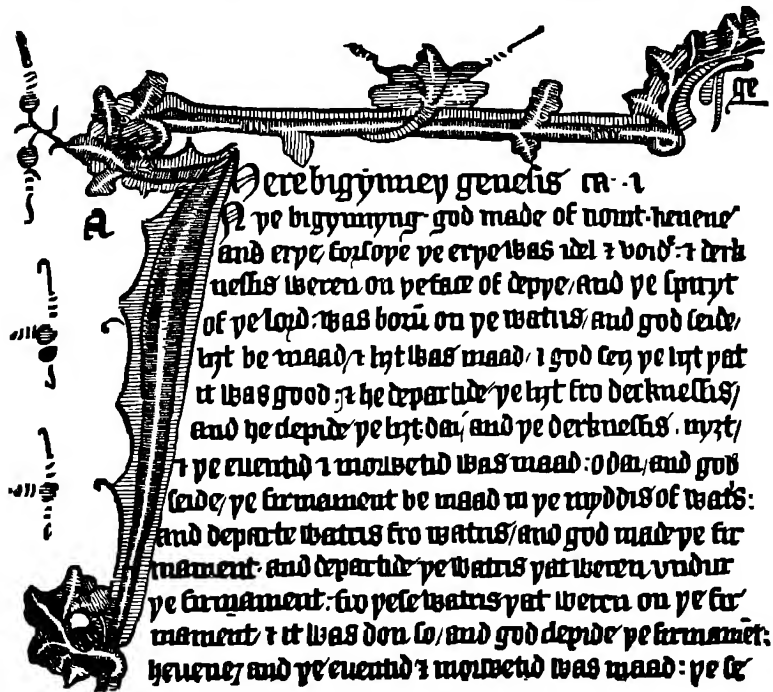 ge
Here bigynneþ genesis ca · 1
A
N þe bigynnyng god made of nouȝt heuene
and erþe / forsoþe þe erþe was idel ⁊ void : ⁊ derk
nessis weren on þe face of depþe / and þe spiryt
of þe lord : was borū on þe watris / and god seide /
liȝt be maad / ⁊ liȝt was maad / ⁊ god seȝ þe liȝt þat
it was good : ⁊ he departide þe liȝt fro derknessis /
and he clepide þe liȝt dai / and þe derknessis . nyȝt /
⁊ þe euentid ⁊ morwetid was maad : o dai / and god
seide / þe firmament be maad in þe myddis of wat's :
and departe watris fro watris / and god made þe fir
mament · and departide þe watris þat weren vndur
þe firmament : fro þese watris þat weren on þe fir
mament / ⁊ it was don so / and god clepide þe firmamēt :
heuene / and þe euentid ⁊ morwetid was maad : þe se